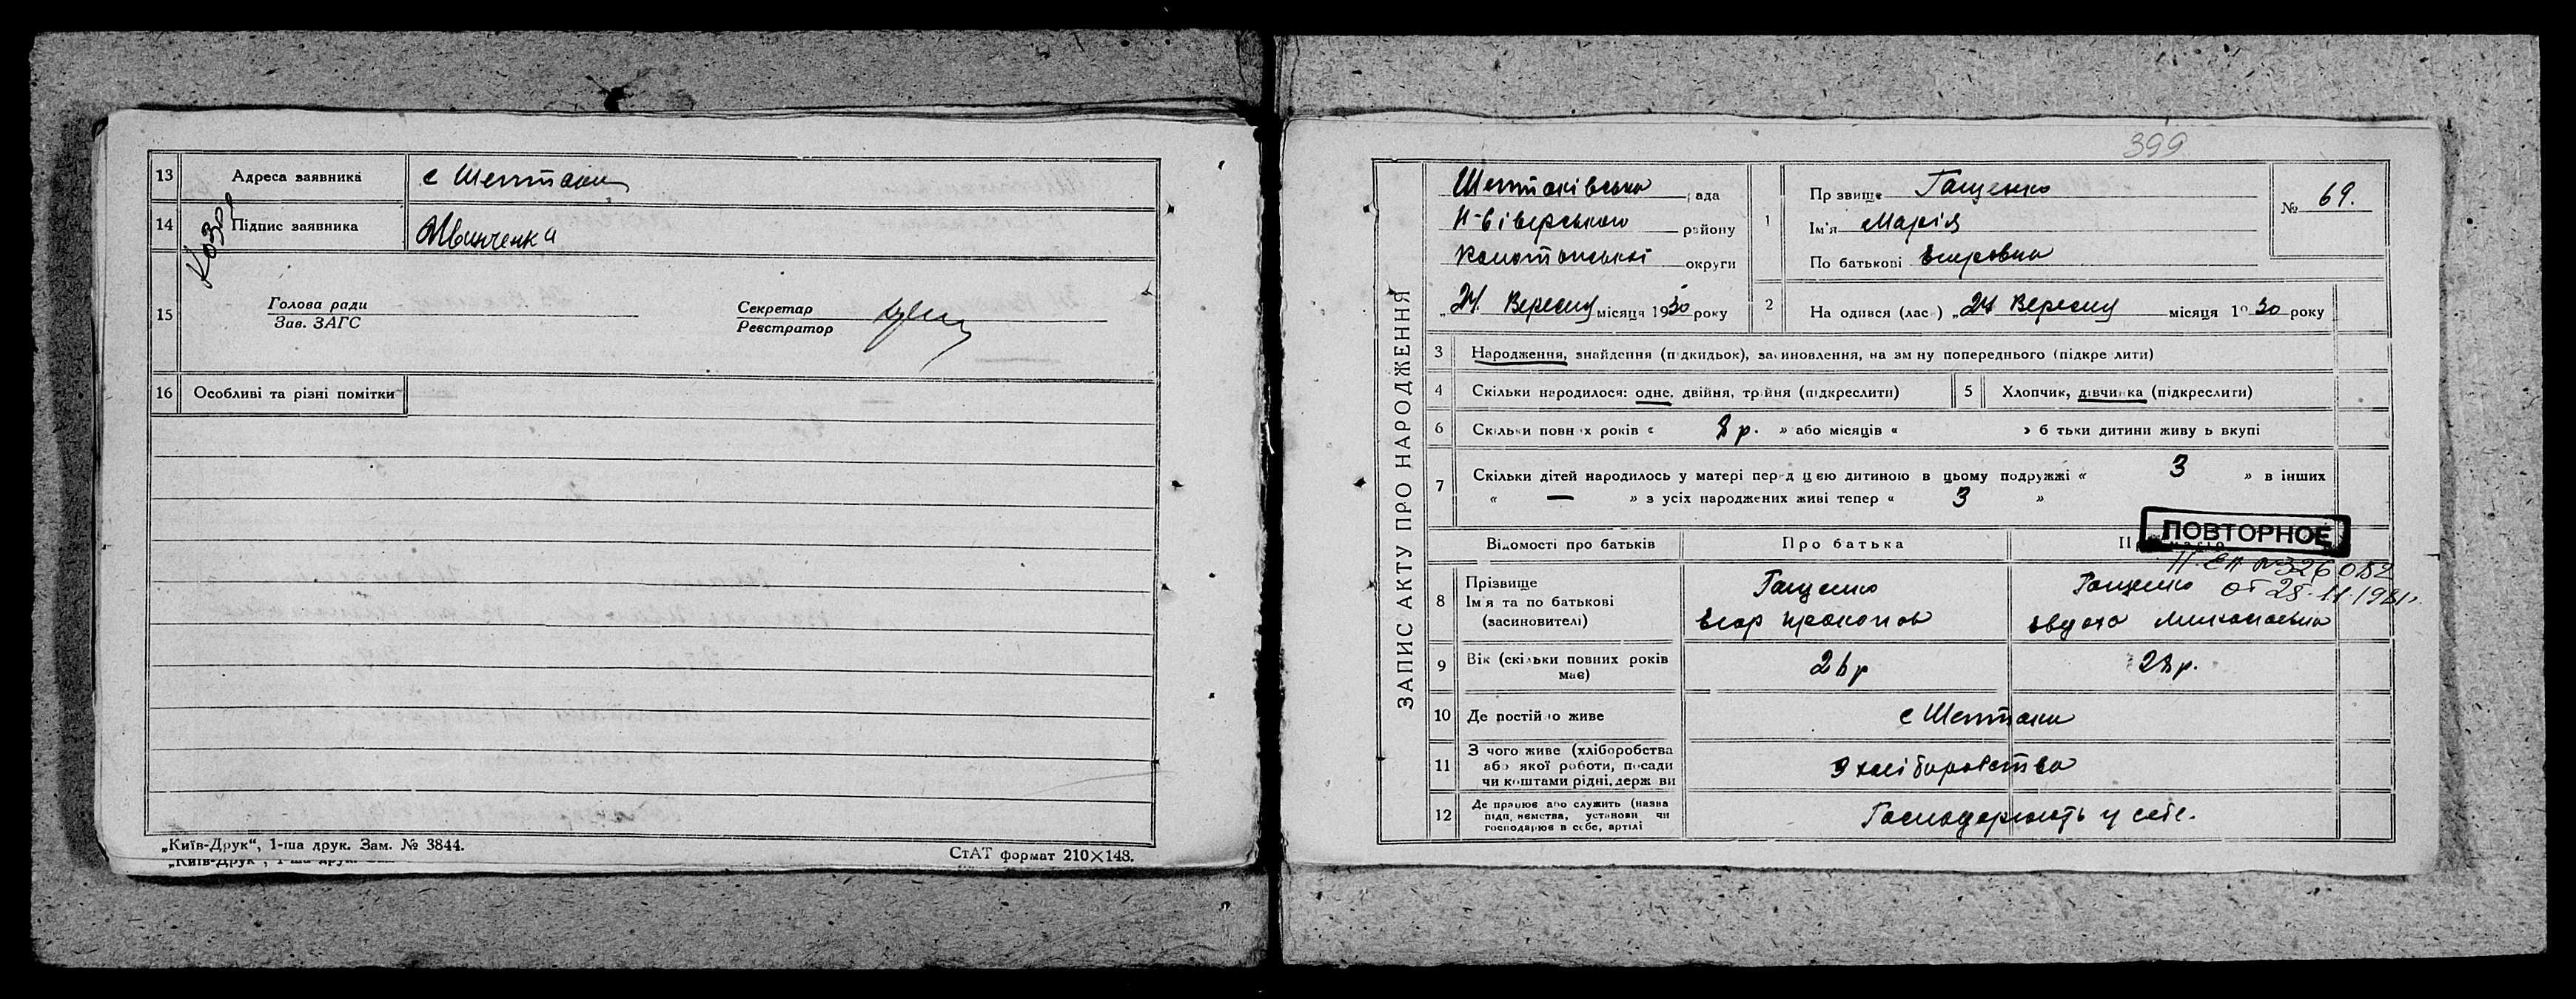 13 Адреса заявника с Шептаки
14 Підпис заявника
15 Голова ради
Зав. ЗАГС
Секретар
Реєстратор
16 Особливі та різні помітки
„Київ-Друк“, 1-ша друк. Зам. № 3844.
СтАТ формат 210×148.
399
ЗАПИС АКТУ ПРО НАРОДЖЕННЯ
Шептаківська рада
Н-Сіверського району
Конотопської округи
„24“ Вересня місяця 1930 року
1 Прізвище Гащенко
Ім'я Марія
По батькові Егоровна
№ 69.
2 На одився (лас ) „24 Вересня місяця 19 30 року
3 Народження, знайдення (підкидьок), засиновлення, на зміну попереднього (підкреслити)
4 Скільки народилося: одне, двійня, трійня (підкреслити)
5 Хлопчик, дівчинка (підкреслити)
6 Скільки повних років « 8 р. » або місяців « » батьки дитини живуть вкупі
7 Скільки дітей народилось у матері перед цією дитиною в цьому подружжі « 3 » в інших
« — » з усіх народжених живі тепер « 3 »
ПОВТОРНОЕ
Відомості про батьків
Про батька
8 Прізвище
Ім'я та по батькові
(засиновителі)
Гащенко
Егор Прокопов
Гащенко
от 25.11.1981г.
9 Вік (скільки повних років має)
28 р.
10 Де постійно живе
с Шептаки
11 З чого живе (хліборобства
або якої роботи, посади
чи коштами рідні, держ ви
З хліборобства
12 Де працює або служить (назва
підприємства, установи чи
господарює в себе, артілі
Господарюють у себе.